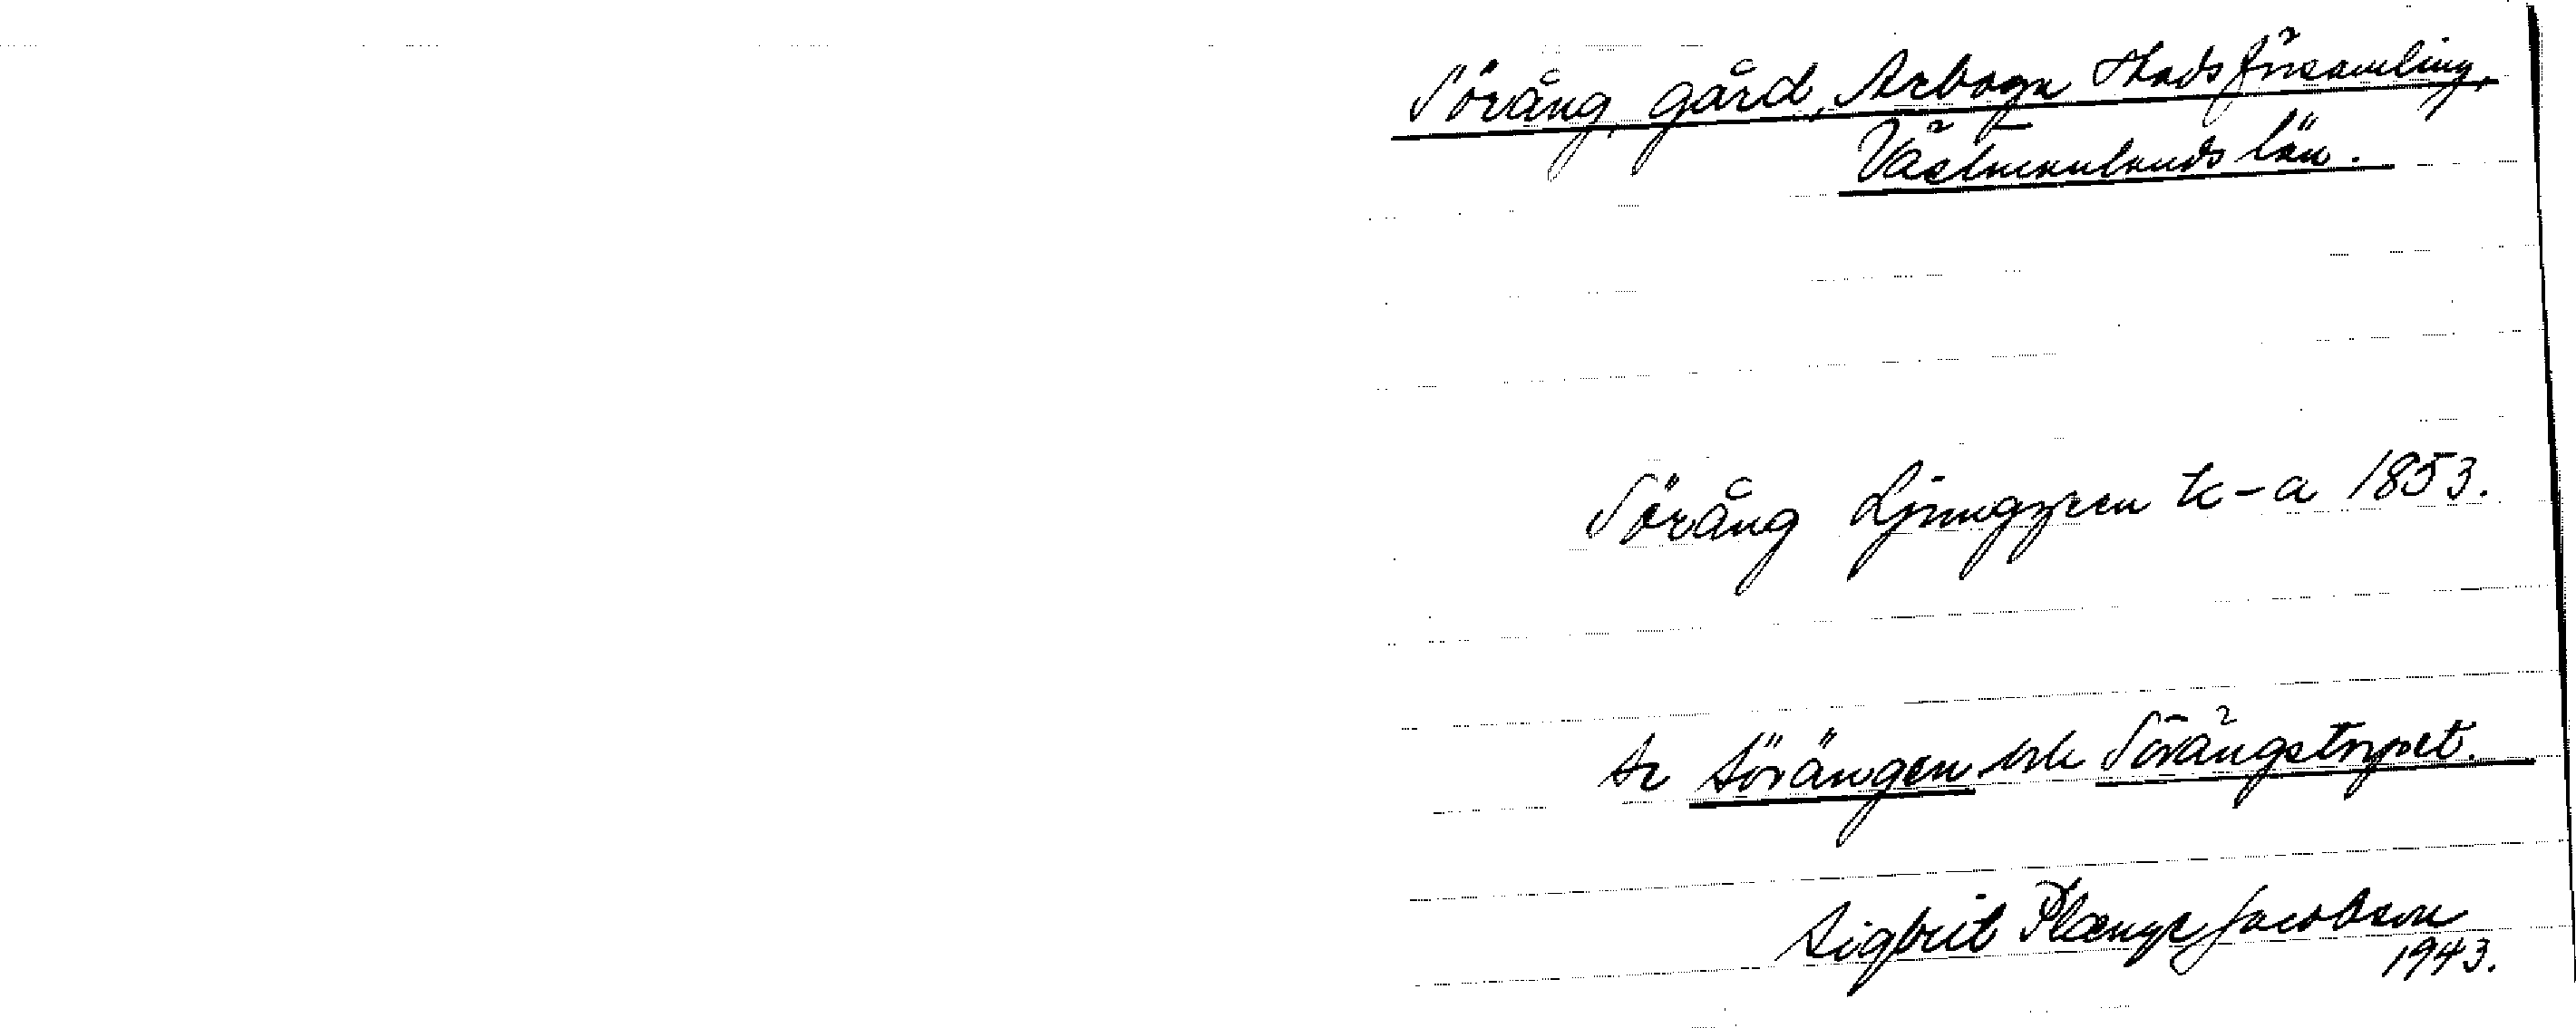 Söräng, gård, Arboga stadsförsamling,
Västmanlands län.
Söräng Ljunggren tc-a 1853.
Se Sörängen och Sörängstorpet.
Sigbrit Plænge Jacobson
1943.